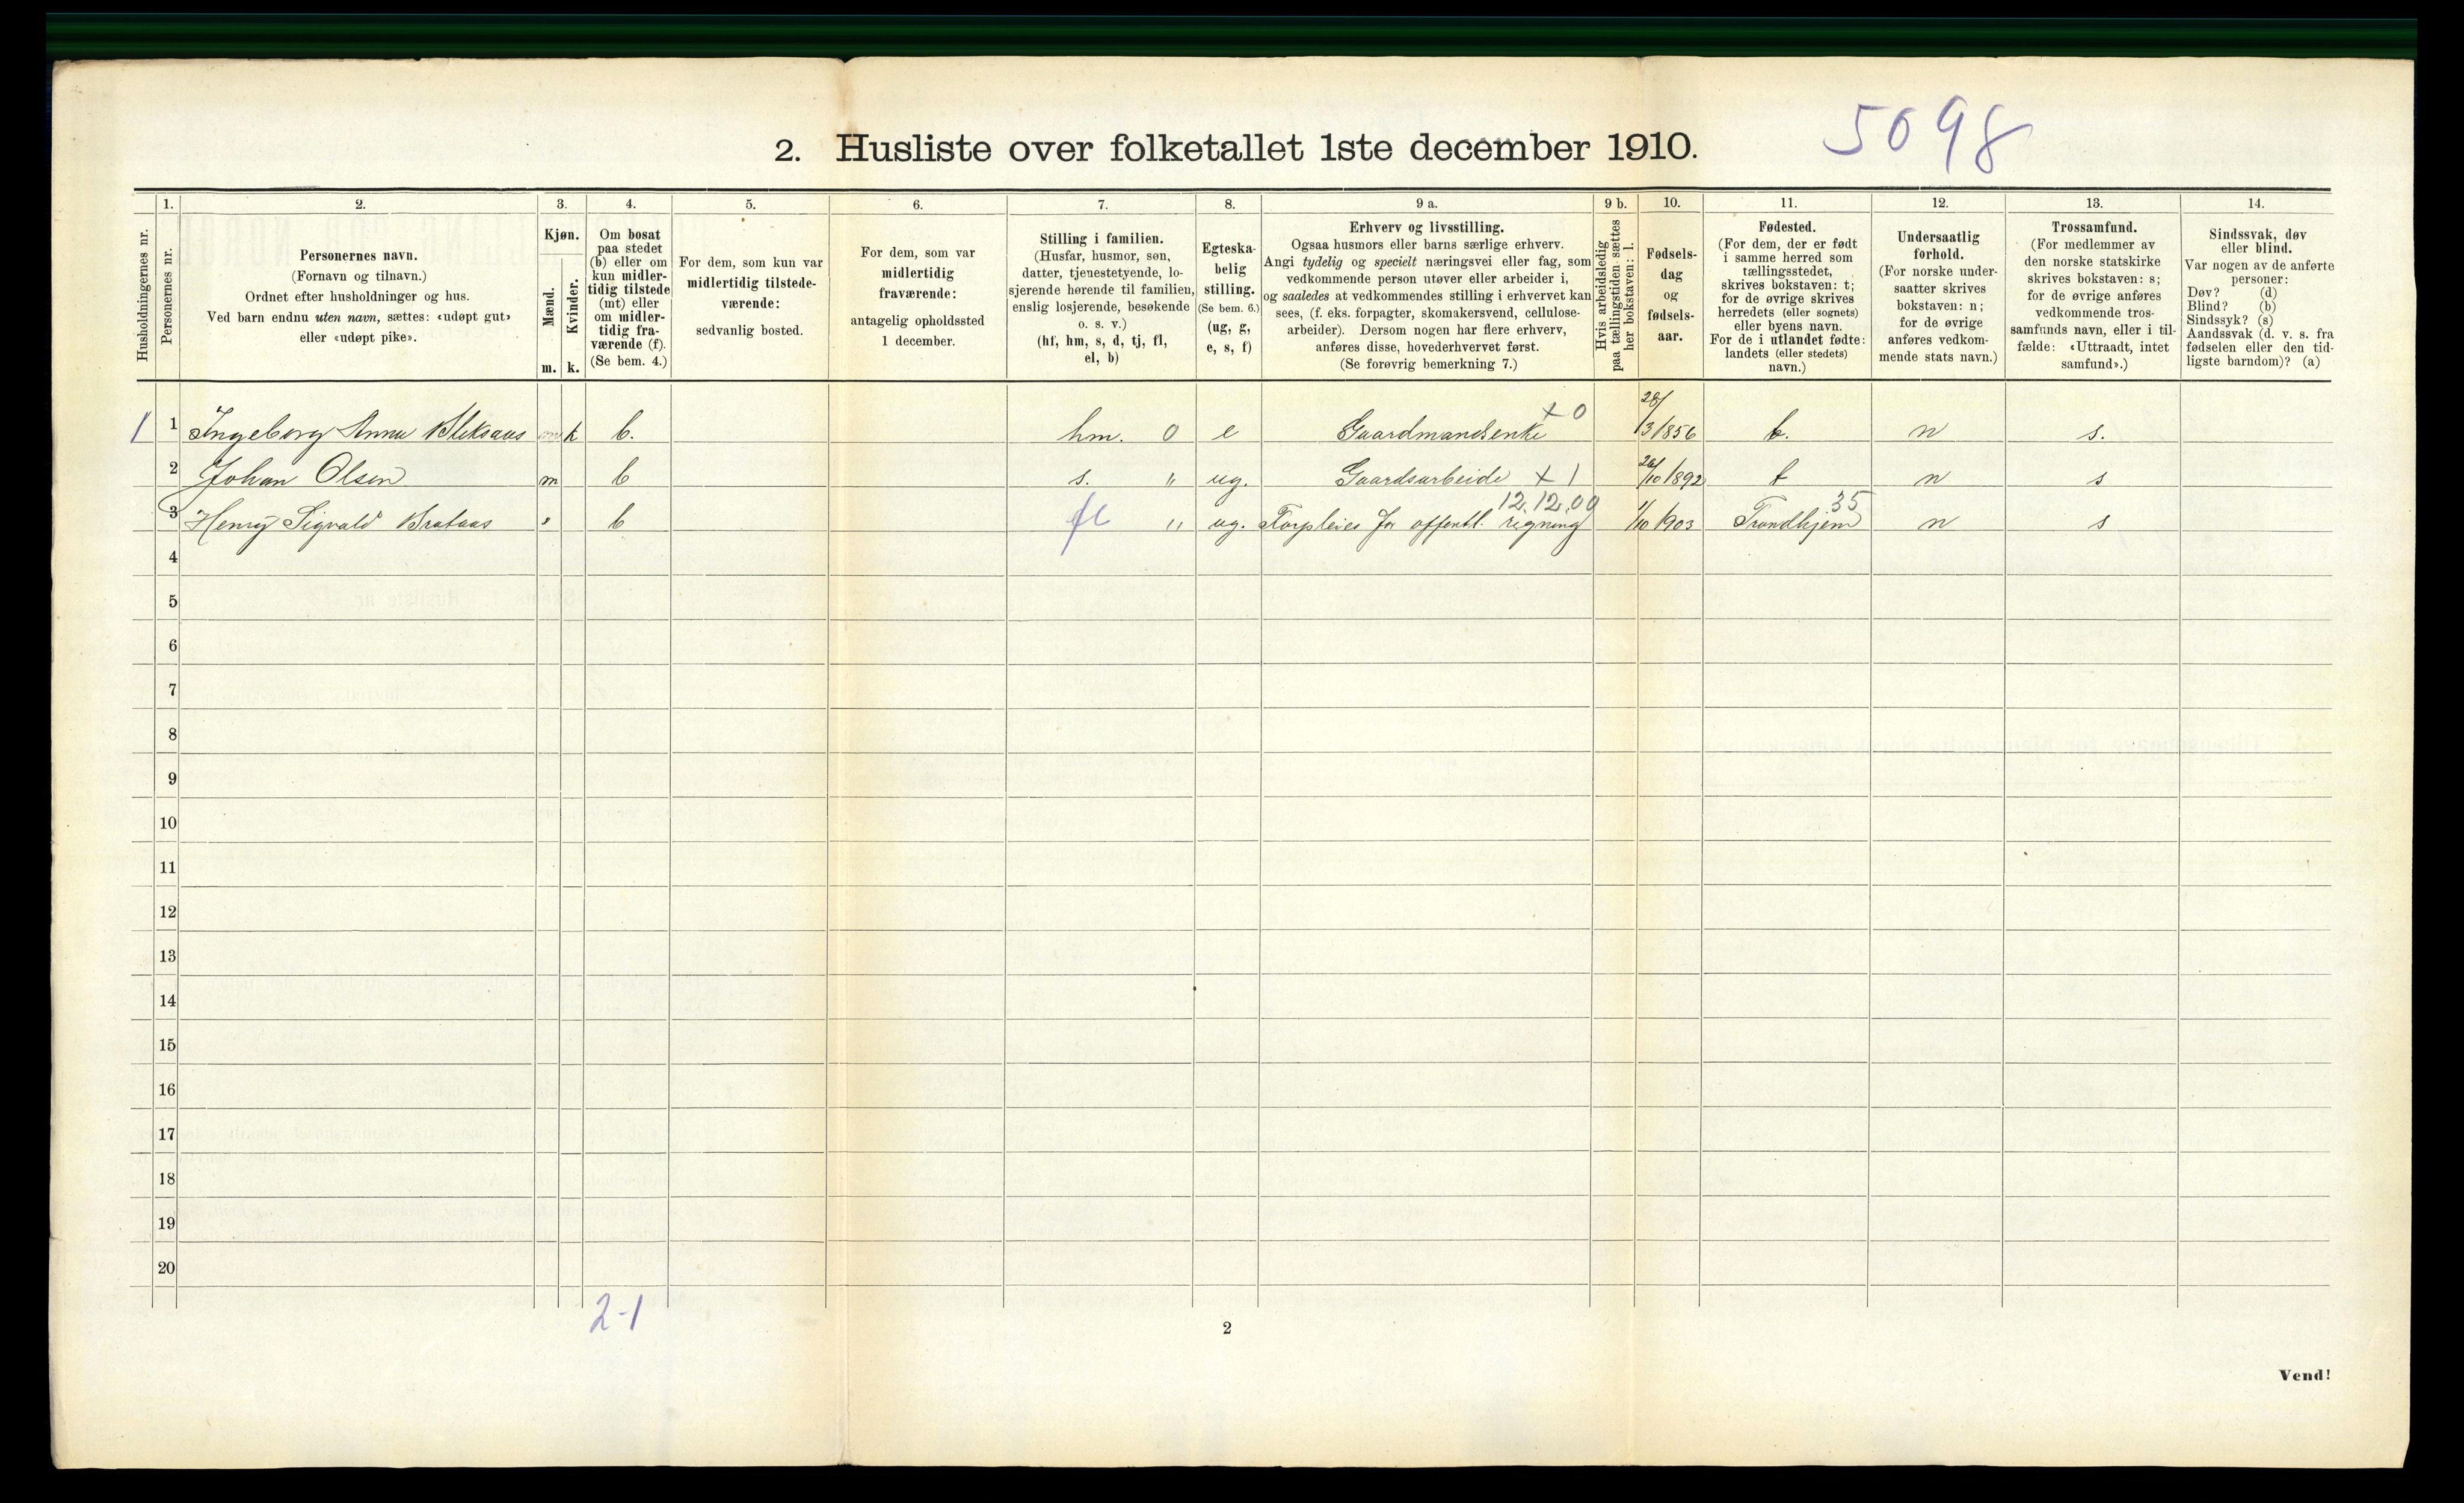 5098
2. Husliste over folketallet 1ste december 1910.
Husholdningernes nr.
1.
Personernes nr.
2.
Personernes navn.
(Fornavn og tilnavn.)
Ordnet efter husholdninger og hus.
Ved barn endnu uten navn, sættes: «udøpt gut»
eller «udøpt pike».
3.
Kjøn.
Mænd.
Kvinder.
m. k.
4.
Om bosat
paa stedet
(b) eller om
kun midler-
tidig tilstede
(mt) eller
om midler-
tidig fra-
værende (f).
(Se bem. 4.)
5.
For dem, som kun var
midlertidig tilstede-
værende:
sedvanlig bosted.
6.
For dem, som var
midlertidig
fraværende:
antagelig opholdssted
1 december.
7.
Stilling i familien.
(Husfar, husmor, søn,
datter, tjenestetyende, lo-
sjerende hørende til familien,
enslig losjerende, besøkende
o. s. v.)
(hf, hm, s, d, tj, fl,
el, b)
8.
Egteska-
belig
stilling.
(Se bem. 6.)
(ug, g,
e, s, f)
9 a.
Erhverv og livsstilling.
Ogsaa husmors eller barns særlige erhverv.
Angi tydelig og specielt næringsvei eller fag, som
vedkommende person utøver eller arbeider i,
og saaledes at vedkommendes stilling i erhvervet kan
sees, (f. eks. forpagter, skomakersvend, cellulose-
arbeider). Dersom nogen har flere erhverv,
anføres disse, hovederhvervet først.
(Se forøvrig bemerkning 7.)
9 b.
Hvis arbeidsledig
paa tællingstiden sættes
her bokstaven: l.
10.
Fødsels-
dag
og
fødsels-
aar.
11.
Fødested.
(For dem, der er født
i samme herred som
tællingsstedet,
skrives bokstaven: t;
for de øvrige skrives
herredets (eller sognets)
eller byens navn.
For de i utlandet fødte:
landets (eller stedets)
navn.)
12.
Undersaatlig
forhold.
(For norske under-
saatter skrives
bokstaven: n;
for de øvrige
anføres vedkom-
mende stats navn.)
13.
Trossamfund.
(For medlemmer av
den norske statskirke
skrives bokstaven: s;
for de øvrige anføres
vedkommende tros-
samfunds navn, eller i til-
fælde: «Uttraadt, intet
samfund».)
14.
Sindssvak, døv
eller blind.
Var nogen av de anførte
personer:
Døv? (d)
Blind? (b)
Sindssyk? (s)
Aandssvak (d. v. s. fra
fødselen eller den tid-
ligste barndom)? (a)
1 1 Ingeborg Anna k b. hm. 0 e Gaardmandsenke x 0 28/3 1856 t. n s.
2 Johan Olsen m b s. " ug. Gaardsarbeide x 1 /10 1892 t n s
3 Henry Sigvald Brataas " b fl " ug. Forpleies for offentl. regning 12.12.00 1/10 1903 Trondhjem 35 n s
4
5
6
7
8
9
10
11
12
13
14
15
16
17
18
19
20
2-1
2
Vend!